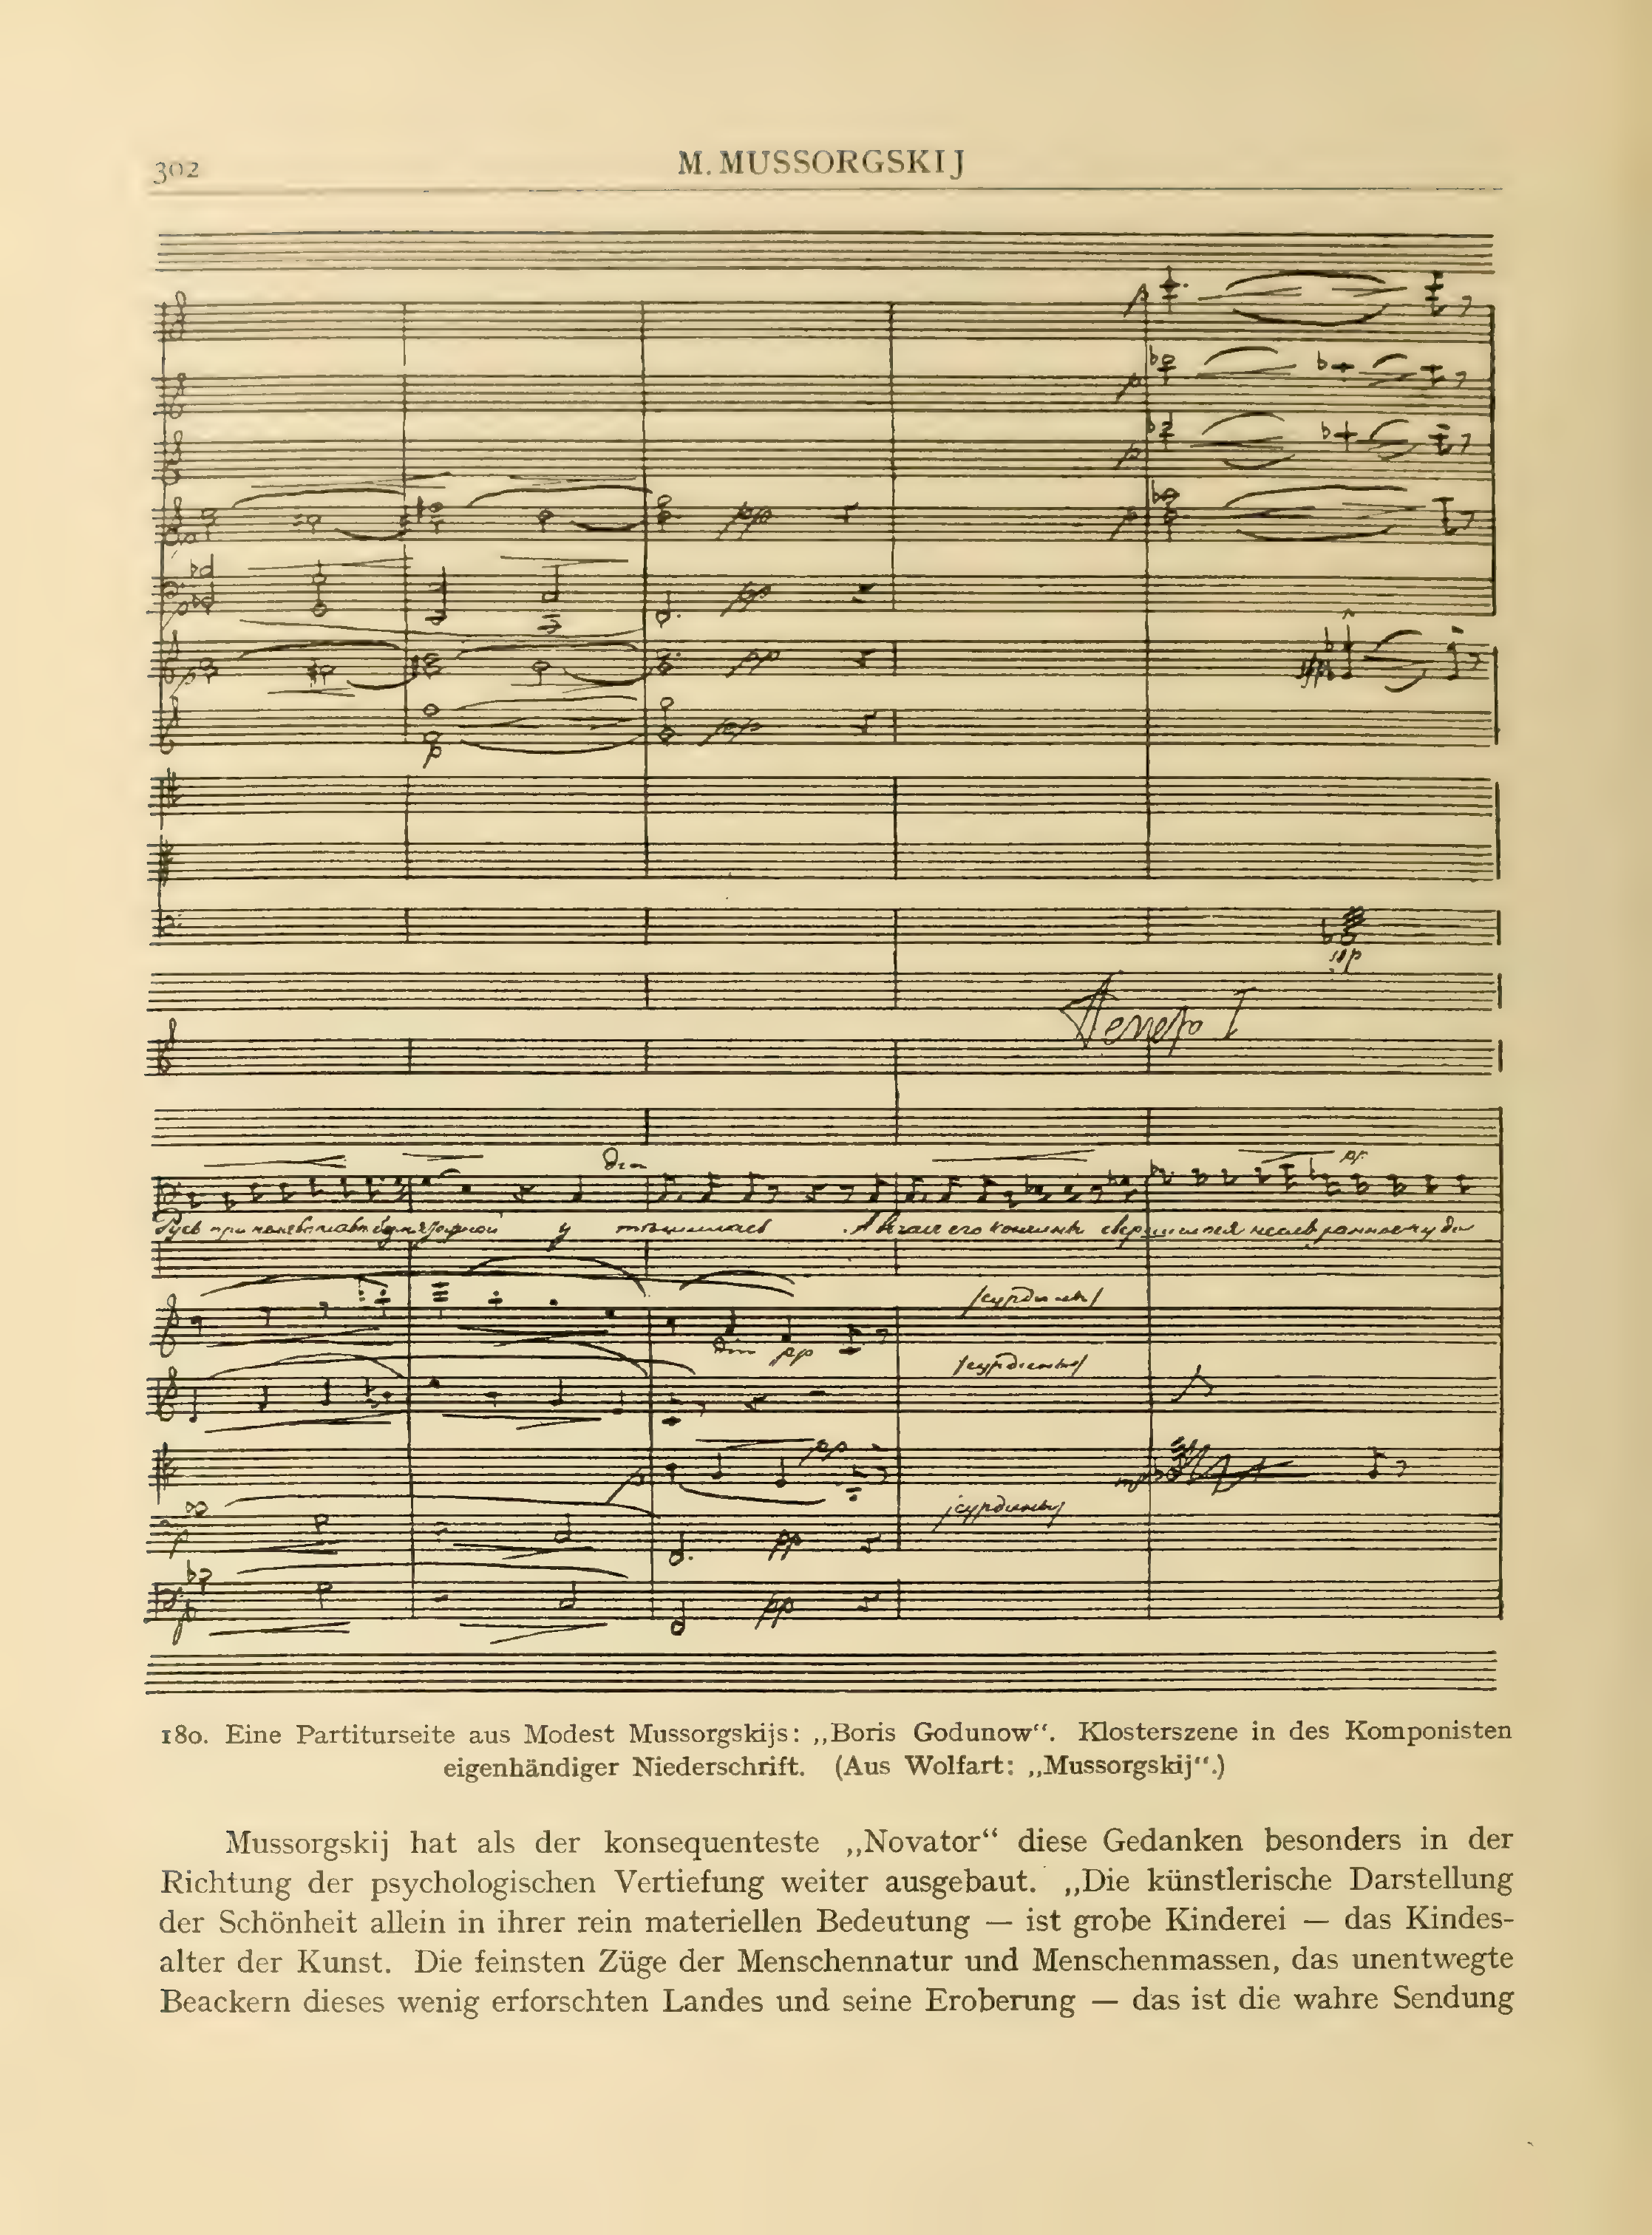 302
M. MUSSORGSKIJ
Темпо I
dim
pp
Русь при нем во славе безмятежной утешилась. А в час его кончины свершилося неслыханное чудо
/сурдины/
dim pp
/сурдины/
pp
/сурдины/
pp
pp
180. Eine Partiturseite aus Modest Mussorgskijs: „Boris Godunow“. Klosterszene in des Komponisten
eigenhändiger Niederschrift. (Aus Wolfart: „Mussorgskij“.)
Mussorgskij hat als der konsequenteste „Novator“ diese Gedanken besonders in der
Richtung der psychologischen Vertiefung weiter ausgebaut. „Die künstlerische Darstellung
der Schönheit allein in ihrer rein materiellen Bedeutung — ist grobe Kinderei — das Kindes-
alter der Kunst. Die feinsten Züge der Menschennatur und Menschenmassen, das unentwegte
Beackern dieses wenig erforschten Landes und seine Eroberung — das ist die wahre Sendung